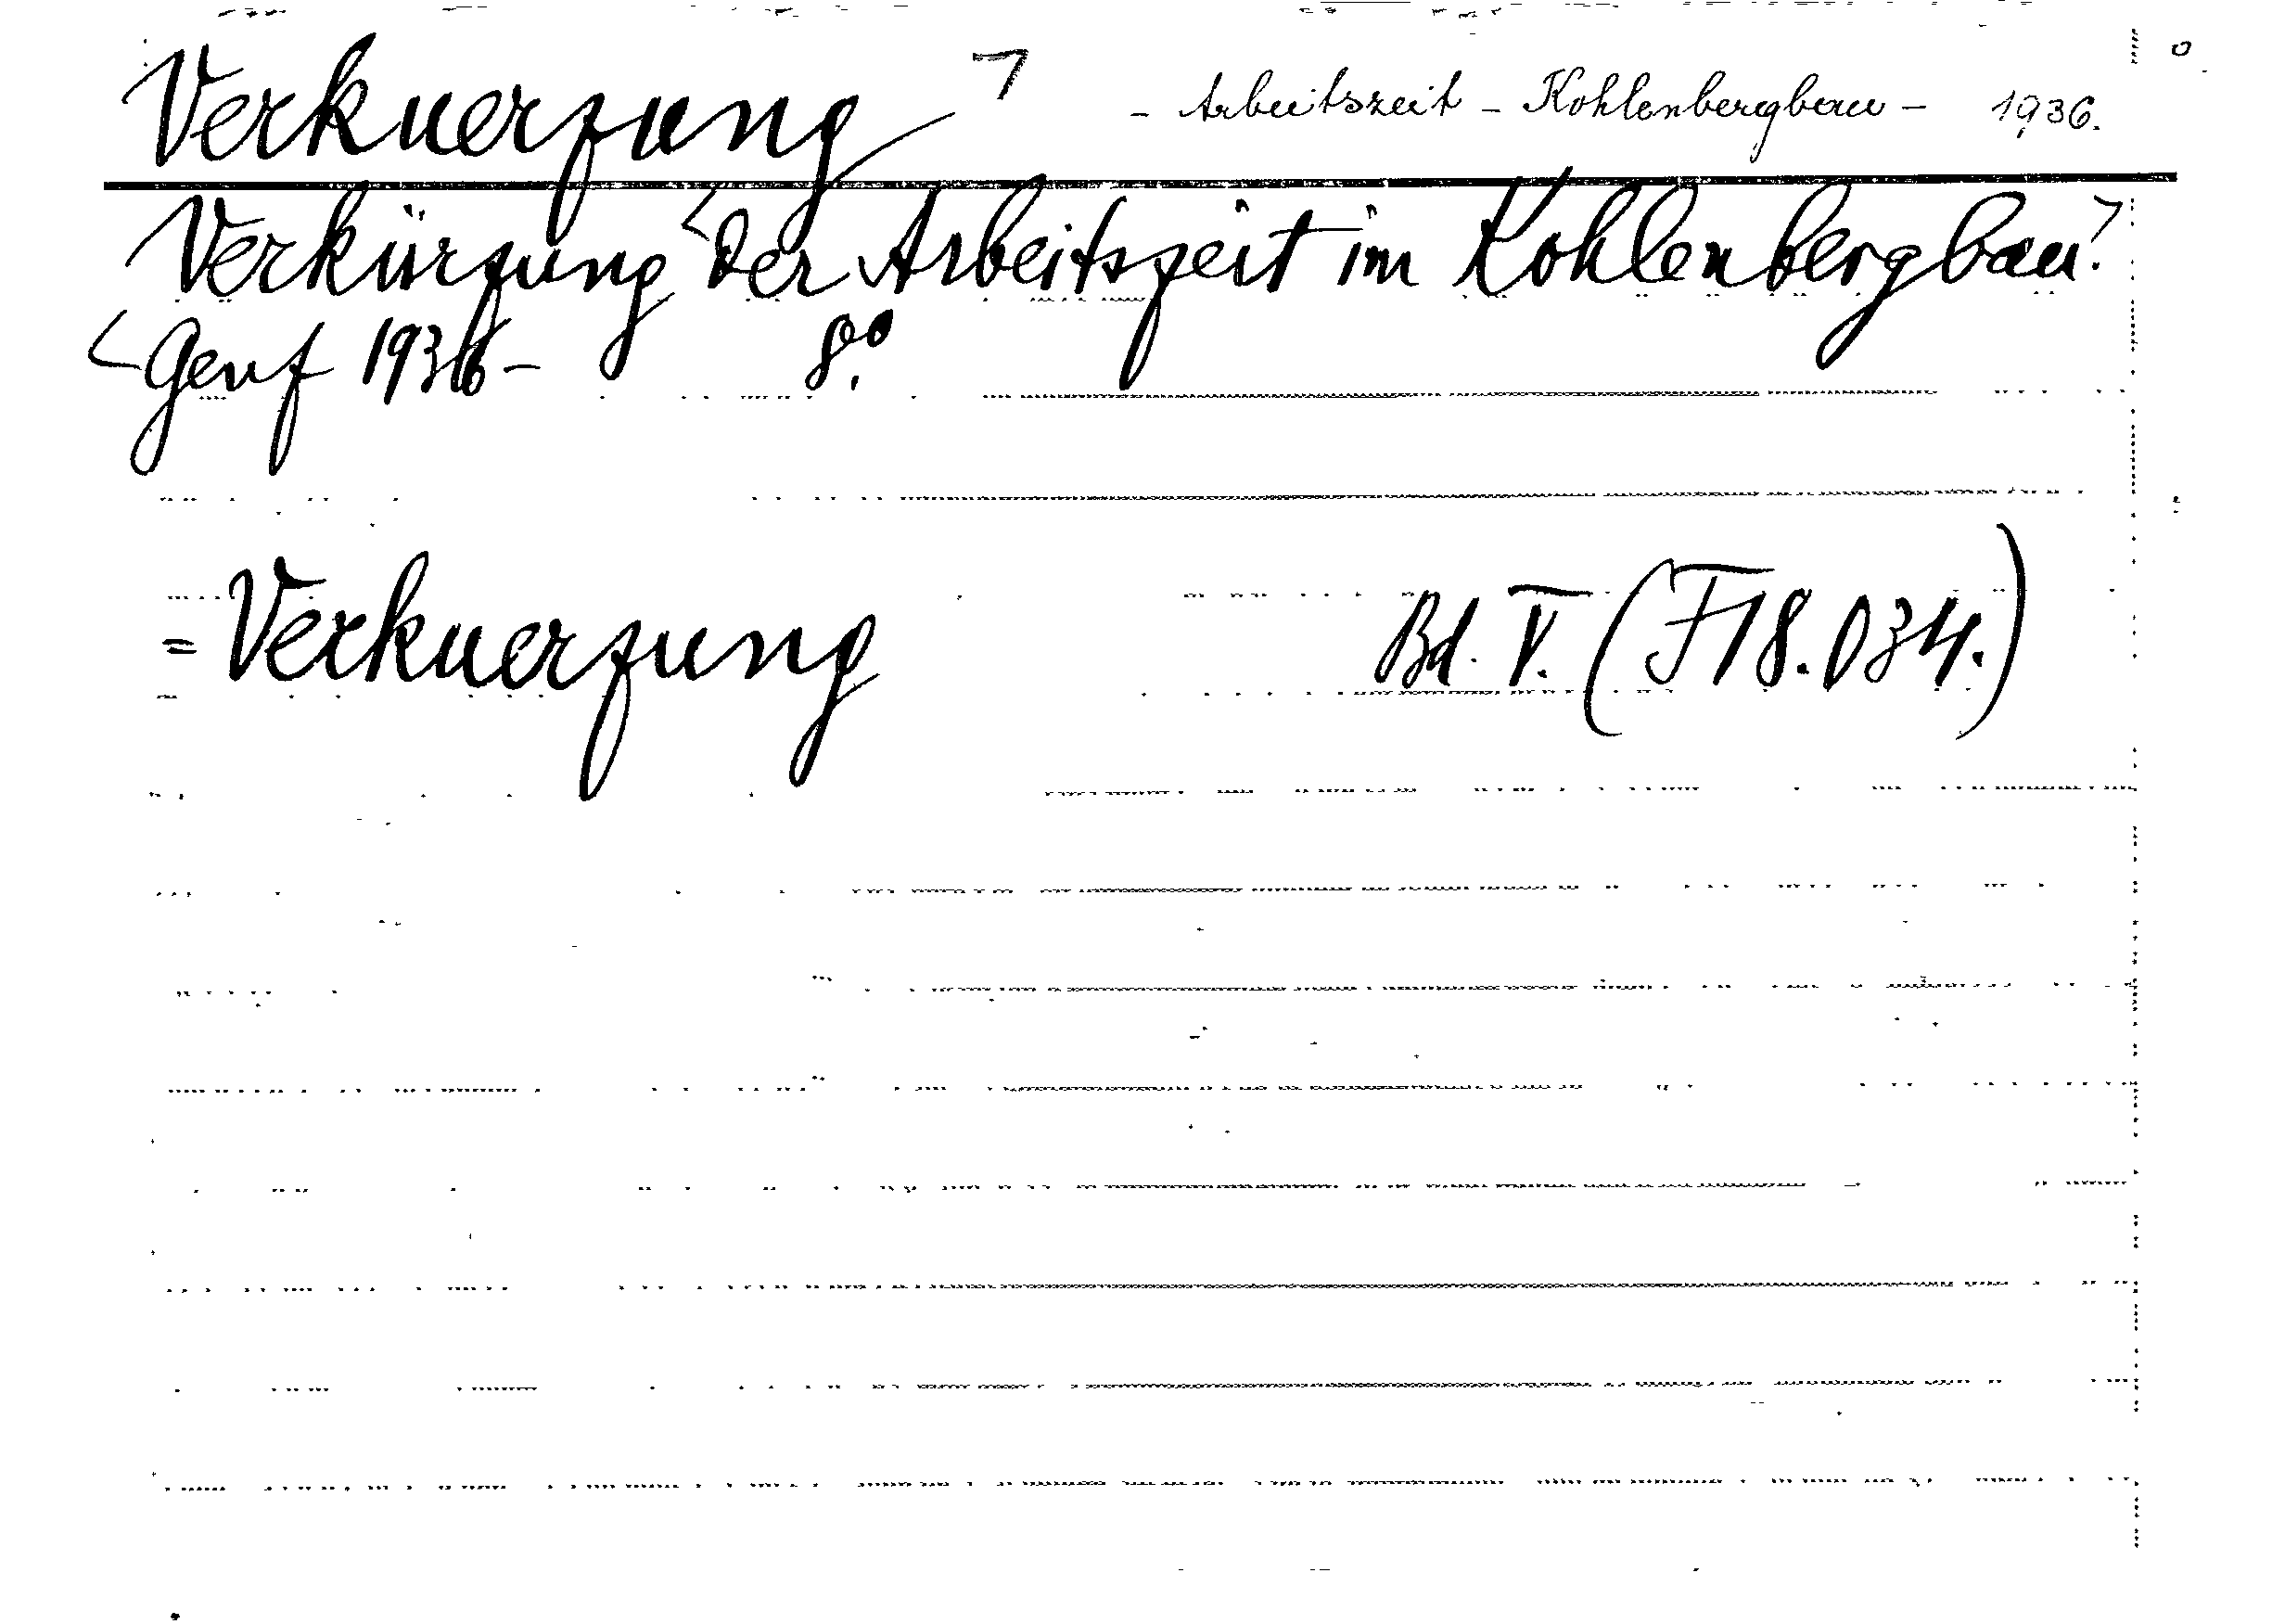 Verkuerzung ⌝ - Arbeitszeit - Kohlenbergbau - 1936.
Verkürzung <der Arbeitszeit im Kohlenbergbau.⌝
<Genf 1936- 8°.
= Verkuerzung Bd. V. (F18.034.)